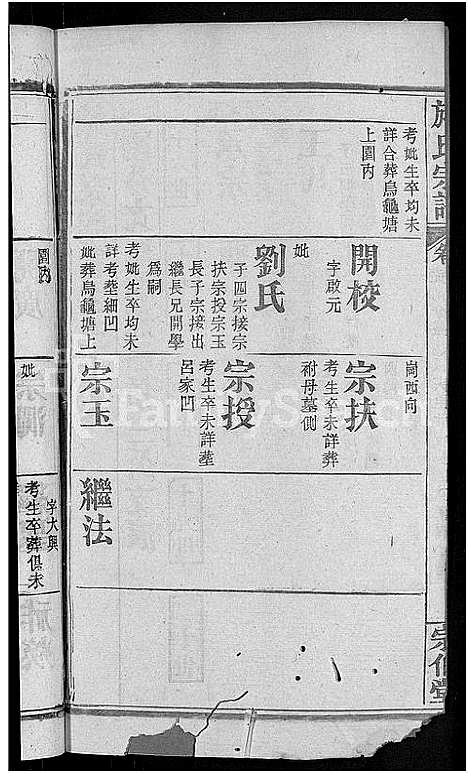 施氏宗譜
考妣生卒均未
詳合葬烏龜塘
上圍內
開校
字啟元
妣
劉氏
子四宗接宗
扶宗授宗玉
長子宗接出
繼長兄開學
為嗣
考妣生卒均未
詳考塟細凹
妣葬烏龜塘上
圍內
崗西向
宗扶
考生卒未詳葬
祔母墓側
宗授
考生卒未詳塟
呂家凹
宗玉
妣
繼法
字大興
考生卒葬俱未